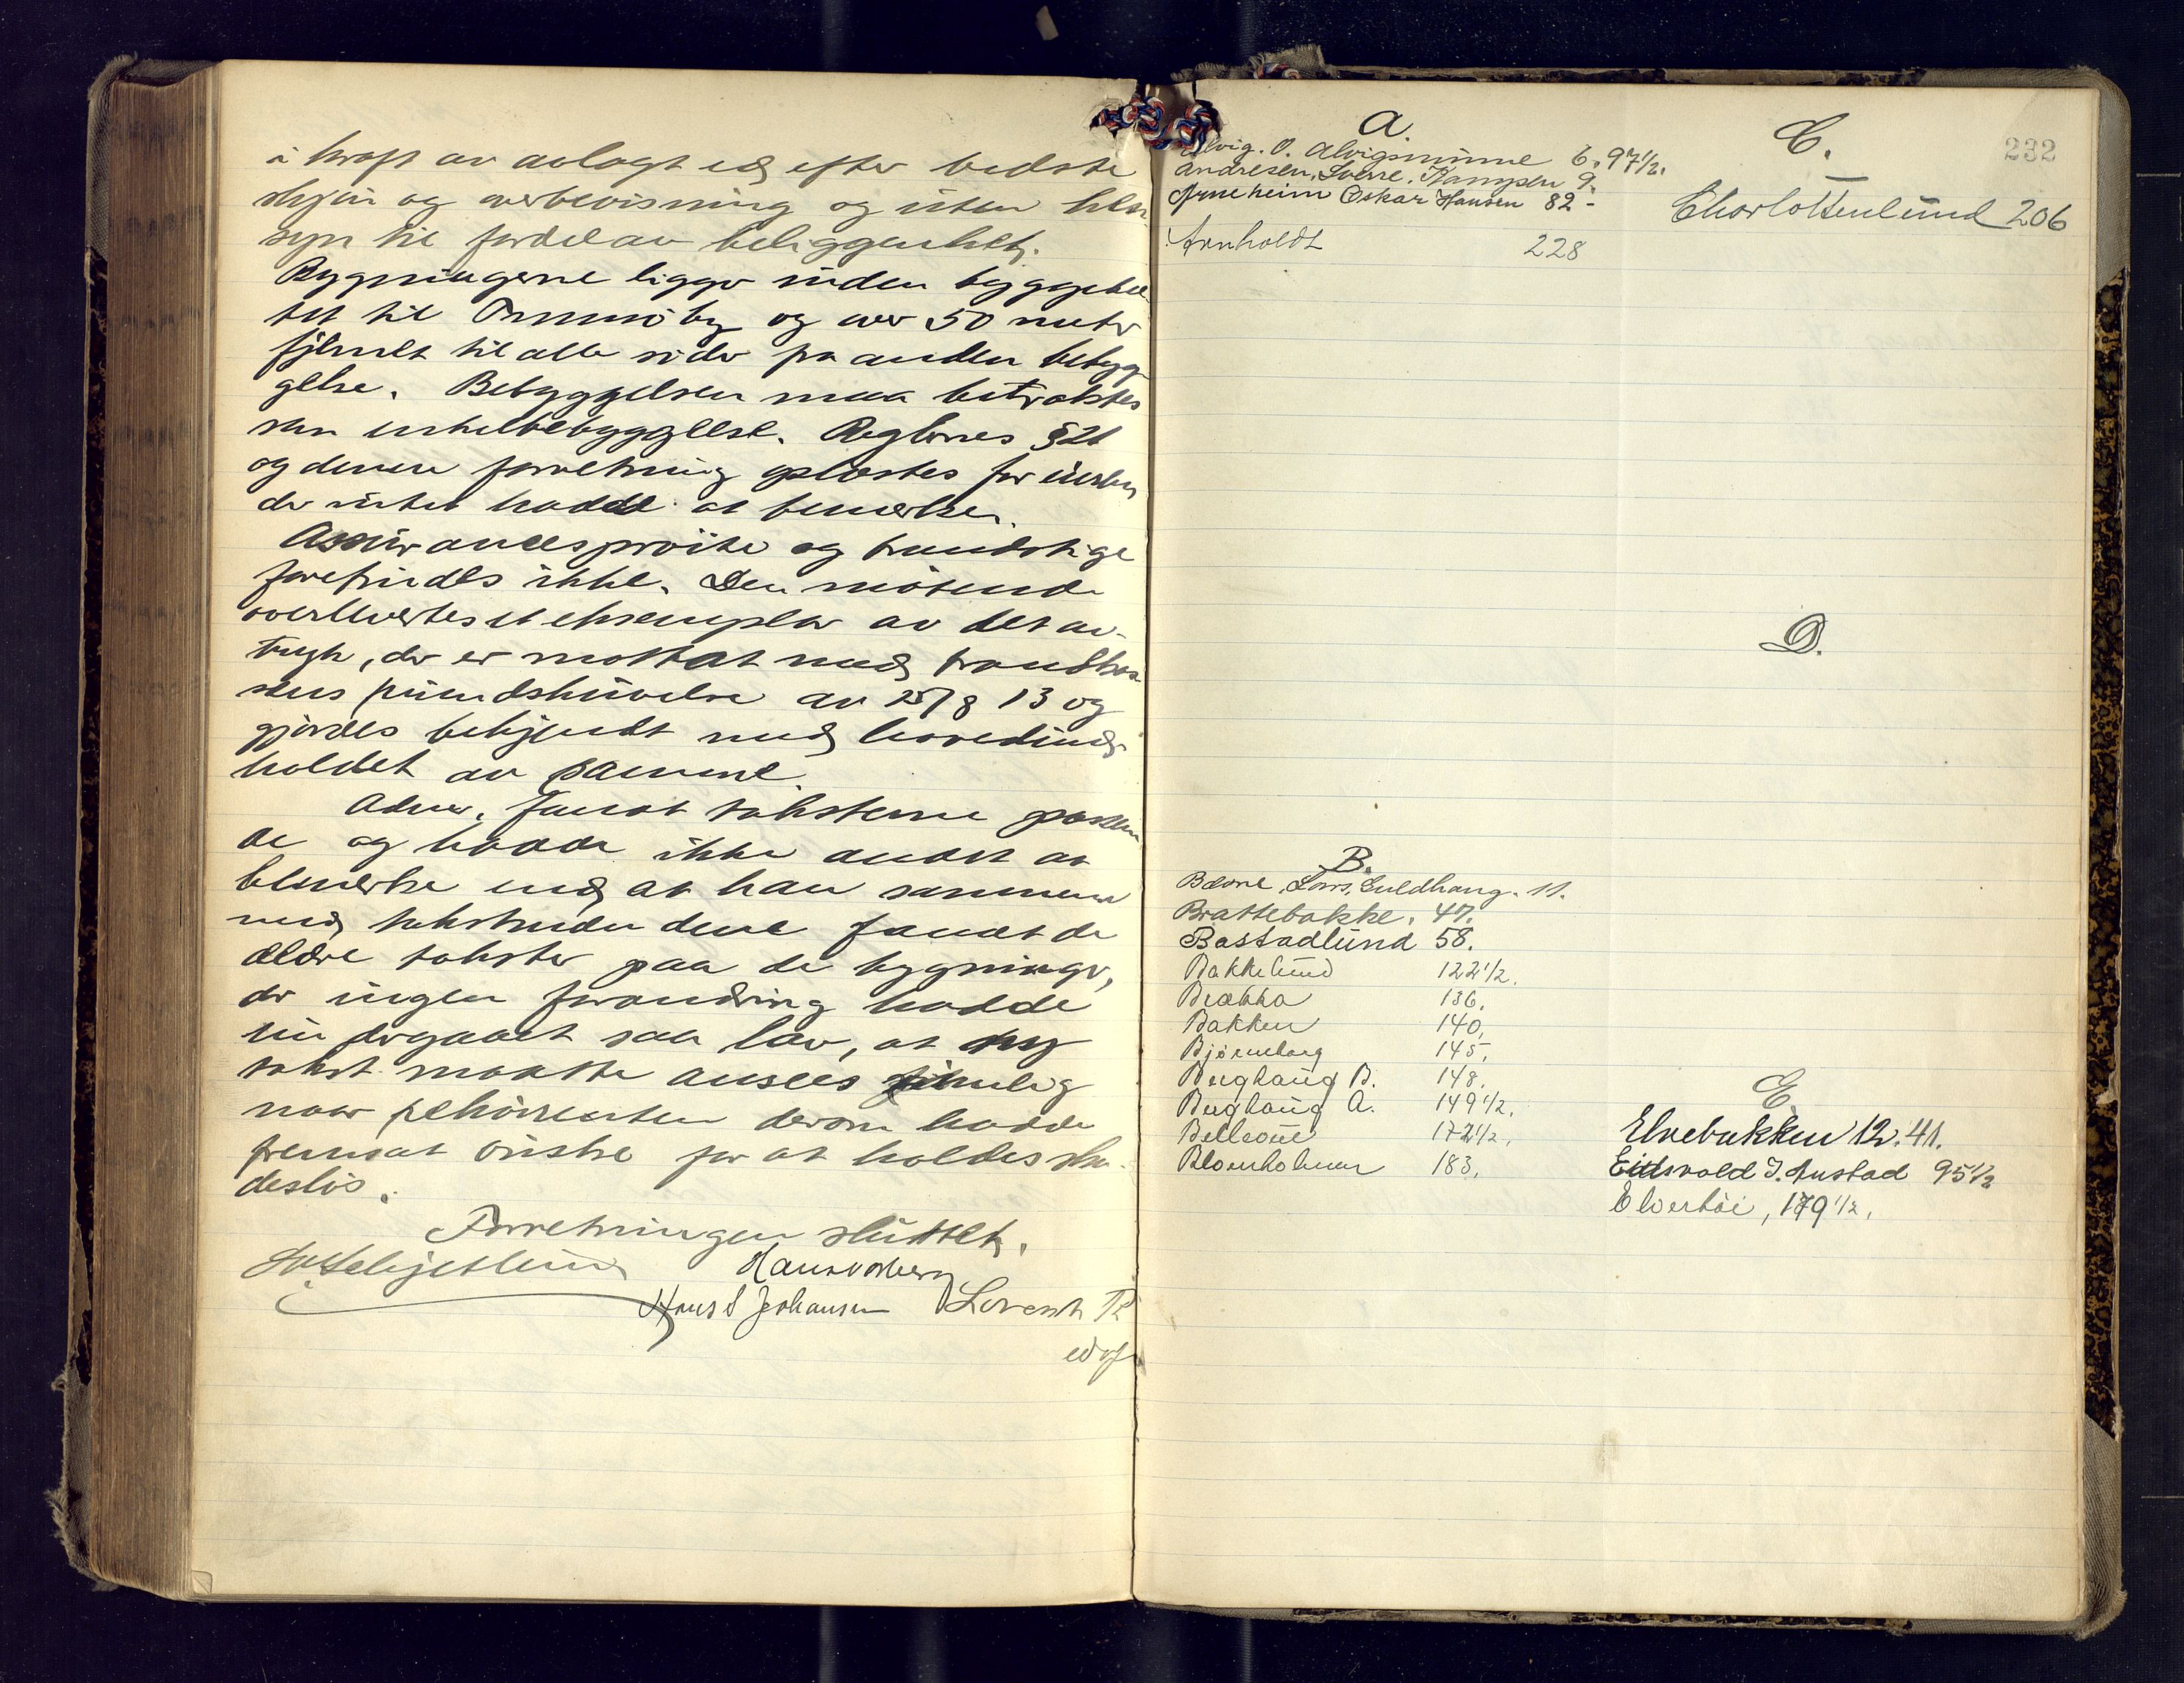 i kraft av avlagt ed efter bedste
skjøn og overbevisning og uten hen
syn til fordel av beliggenhet.
Bygningerne ligger inden byggebel
tet til Tromsø by og over 50 meter
fjernet til alle sider fra anden bebyg
gelse. Bebyggelsen maa betraktes
som enkelbebyggelse. Reglenes § 21
og denne forretning oplæstes for
der intet hadde at bemerke.
Assurancesprøite og brandstige
forefindes ikke. Den møtende
overlevertes et eksemplar av det av-
trykk, der er mottat med brandkas
sens rundskrivelse av 25/8 13 og
gjordes bekjendt med hovedind-
holdet av samme.
Adm. fandt taksterne passen
de og hadde ikke andet at
bemerke end at han sammen
med takstmændene fandt de
ældre takster paa de bygninger,
der ingen forandring hadde
undergaaet saa lav, at ny
takst maatte ansees
naar rekvirenten derom hadde
fremsat ønske for at holdes ska-
desløs.
Forretningen sluttet.
Hans
Hans S Johansen Lorentz
232
A.
Alvig. O. Alvigminne 6. 97 1/2.
Andresen, Sverre. Kampen 9.
Arneheim Oskar Hansen 82 -
Arnholdt 228
C.
Charlottenlund 206
D.
B.
Bævre, Lars, Guldhaug. 11.
Brattebakke. 47.
Bastadlund 58.
Bakkelund 122 1/2.
Brækka 136.
Bakken 140.
Bjørneborg 145.
Berghaug B. 148.
Berghaug A. 149 1/2.
Bellevue 172 1/2.
Blomholmen 183.
E.
Elvebakken 12. 41.
Eidsvold J. Austad 95 1/2
Elverhøi, 179 1/2.